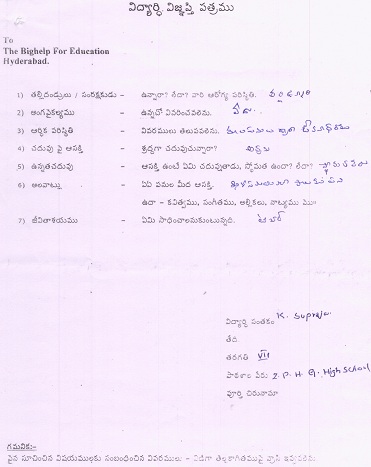 విద్యార్థి విజ్ఞప్తి పత్రము
To
The Bighelp For Education
Hyderabad.
1) తల్లిదండ్రులు / సంరక్షకుడు - ఉన్నారా? లేదా? వారి ఆరోగ్య పరిస్థితి.
2) అంగవైకల్యము - ఉన్నచో వివరించవలెను. లేదు
3) ఆర్థిక పరిస్థితి - వివరములు తెలుపవలెను.
4) చదువు పై ఆసక్తి - శ్రద్ధగా చదువుచున్నారా?
5) ఉన్నతచదువు - ఆసక్తి ఉంటే ఏమి చదువుతాడు, స్తోమత ఉందా? లేదా?
6) అలవాట్లు - ఏఏ పనుల మీద ఆసక్తి.
ఉదా - కవిత్వము, సంగీతము, అల్లికలు, నాట్యము మొ||
7) జీవితాశయము - ఏమి సాధించాలనుకుంటున్నది. టీచర్
విద్యార్థి సంతకం K. Supraja
తేది.
తరగతి VII
పాఠశాల పేరు Z. P. H. G. High School
పూర్తి చిరునామా
గమనిక:-
పైన సూచించిన విషయములకు సంబంధించిన వివరములు - విడిగా తెల్లకాగితముపై వ్రాసి ఇవ్వవలెను.